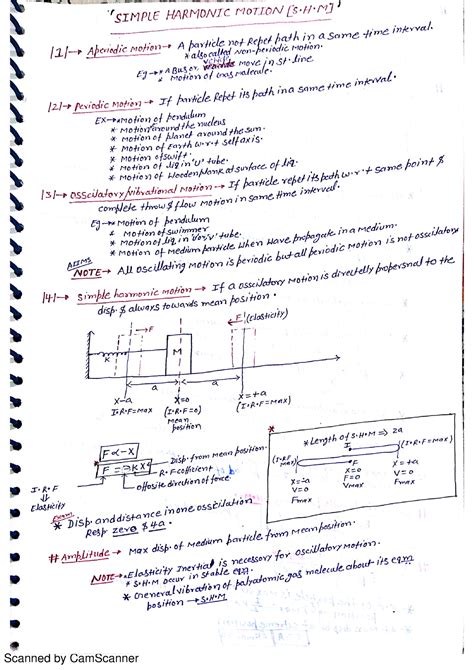 "SIMPLE HARMONIC MOTION [S.H.M]"
|1|→ Aperiodic motion → A particle not Repet path in a same time interval.
* also called Non-periodic motion.
Eg → * A Bus or vehicle move in st. line
* Motion of Gas malecule.
|2|→ Periodic Motion → If particle Repet its path in a same time interval.
EX → * Motion of pendulum
* Motion around the nucleus
* Motion of planet around the sun.
* Motion of Earth w.r.t self axis.
* Motion of swift.
* Motion of liq in 'U' tube.
* Motion of Wooden plank at surface of liq.
|3|→ Osscilatory/vibrational Motion → If particle repet its path w.r.t same point &
complete throw & flow motion in same time interval.
Eg → * Motion of pendulum
* Motion of swimmer
* Motion of liq in 'U' or 'v' tube.
* Motion of Medium particle when wave propagate in a medium.
AIIMS
NOTE → All oscillating motion is periodic but all periodic motion is not oscillatory
|4|→ Simple harmonic motion → If a osscilatory Motion is directelly propersnal to the
disp. & always towards mean position.
F (Elasticity)
→F
K
M
a
a
x=-a
x=0
x=+a
I.R.F=max
(I.R.F=0)
(I.R.F=Max)
mean
position
F ∝ -X
F = -KX
Disp. from mean position.
R.F coefficient
opposite direction of force
I.R.F
⇓
Elasticity
*
* Length of S.H.M ⇒ 2a
(I.R.F
max)
(I.R.F=Max)
F
X=-a
V=0
Fmax
X=0
F=0
Vmax
X=+a
V=0
Fmax
Exam
* Disp. and distance in one osscilation
Resp zero & 4a.
# Amplitude → Max disp. of Medium particle from Mean position.
NOTE → * Elasticity Inertia is necessary for oscillatory Motion.
* S.H.M occur in stable eqm.
* General vibration of polyatomic gas molecule about its eqm
position → S.H.M
Scanned by CamScanner